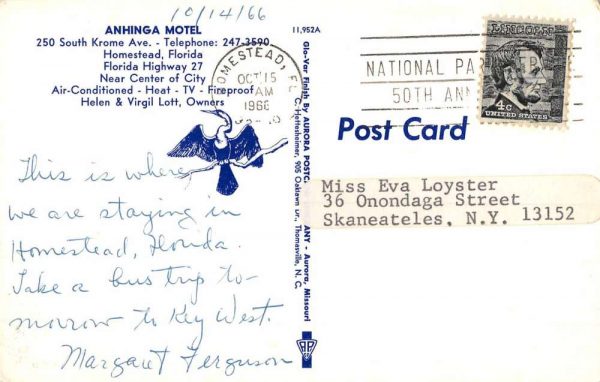 10/14/66
ANHINGA MOTEL
250 South Krome Ave. - Telephone: 247-3590
Homestead, Florida
Florida Highway 27
Near Center of City
Air-Conditioned - Heat - TV - Fireproof
Helen & Virgil Lott, Owners
This is where
we are staying in
Homestead, Florida.
Take a bus trip to-
morrow to Key West.
Margaret Ferguson
11,952A
Glo-Var Finish By AURORA POSTC ANY - Aurora, Missouri
C. Hottsheimer, 905 Oaklawn Dr., Thomasville, N. C.
HOMESTEAD, FL
OCT 15
AM
1966
NATIONAL PA
50TH ANN
4c
UNITED STATES
Post Card
Miss Eva Loyster
36 Onondaga Street
Skaneateles, N.Y. 13152